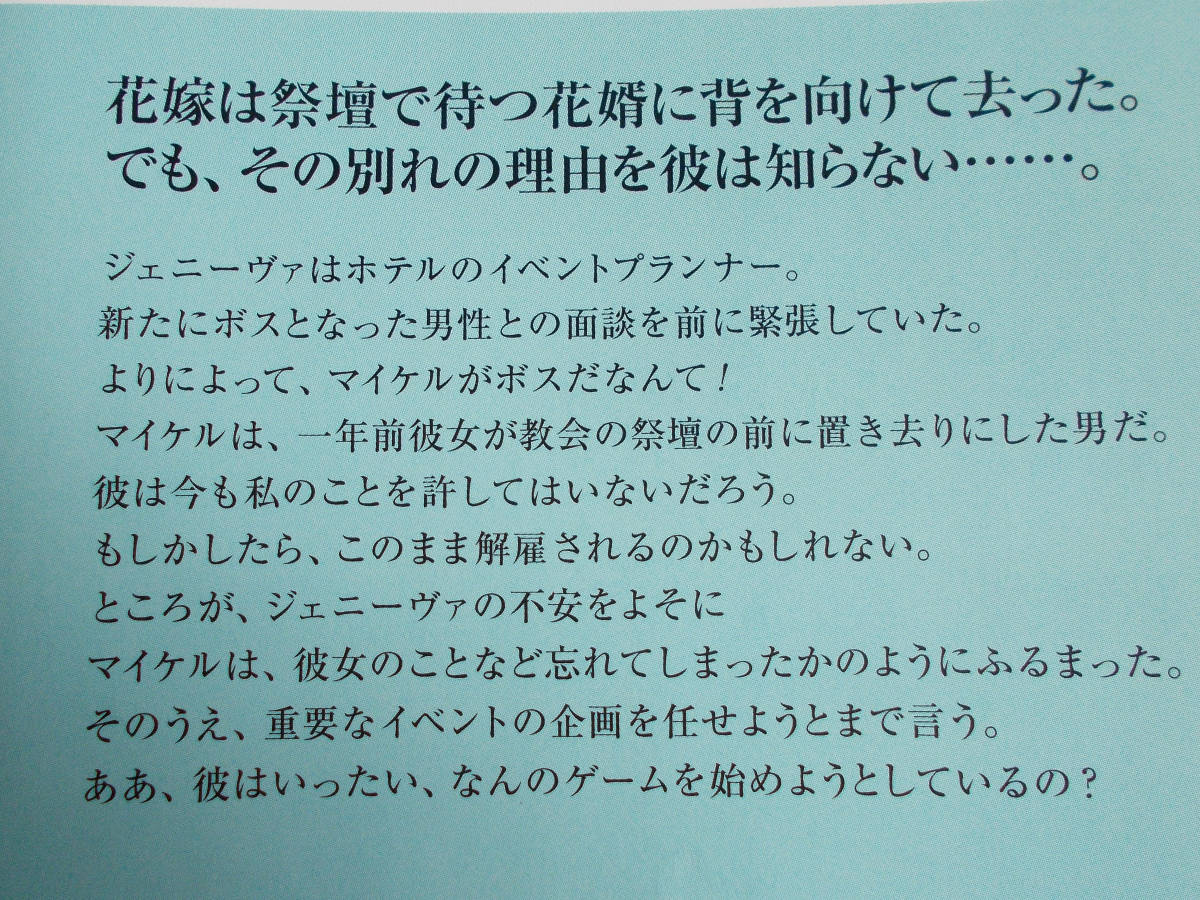 花嫁は祭壇で待つ花婿に背を向けて去った。
でも、その別れの理由を彼は知らない……。
ジェニーヴァはホテルのイベントプランナー。
新たにボスとなった男性との面談を前に緊張していた。
よりによって、マイケルがボスだなんて！
マイケルは、一年前彼女が教会の祭壇の前に置き去りにした男だ。
彼は今も私のことを許してはいないだろう。
もしかしたら、このまま解雇されるのかもしれない。
ところが、ジェニーヴァの不安をよそに
マイケルは、彼女のことなど忘れてしまったかのようにふるまった。
そのうえ、重要なイベントの企画を任せようとまで言う。
ああ、彼はいったい、なんのゲームを始めようとしているの？